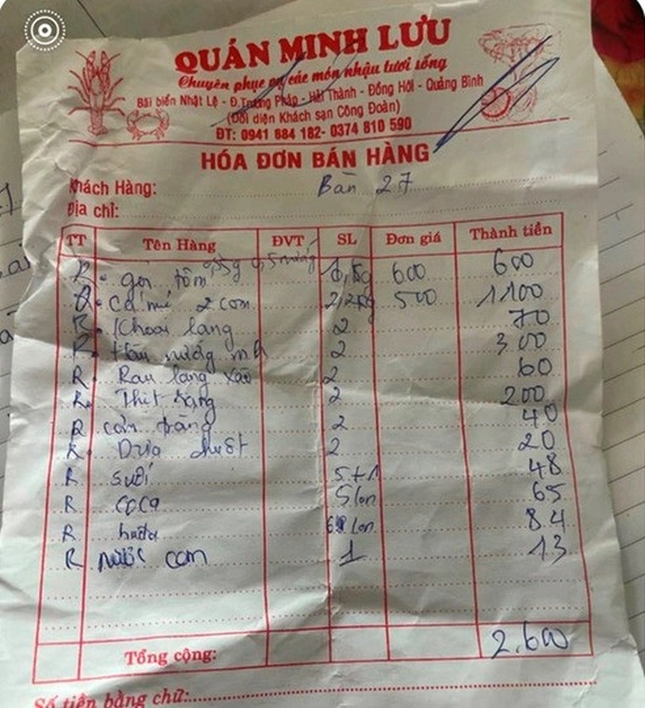 QUÁN MINH LƯU
Chuyên phục vụ các món nhậu tươi sống
Bãi biển Nhật Lệ - Đ.Trương Pháp - Hải Thành - Đồng Hới - Quảng Bình
(Đối diện Khách sạn Công Đoàn)
ĐT: 0941 884 182- 0374 810 590
HÓA ĐƠN BÁN HÀNG
Khách Hàng: Bàn 27
Địa chỉ:
TT Tên Hàng ĐVT SL Đơn giá Thành tiền
R gỏi tôm 600 600
cá mú 2 con 2,2kg 500 1100
R Khoai lang 2 70
R Hàu nướng mh 2 300
R Rau lang xào 2 60
R Thịt rang 2 200
R cơm trắng 2 40
R Dưa chuột 2 20
R suối 5+1 48
R coca 5 lon 65
R huda lon 84
R nước cam 1 13
Tổng cộng: 2.600
Số tiền bằng chữ: